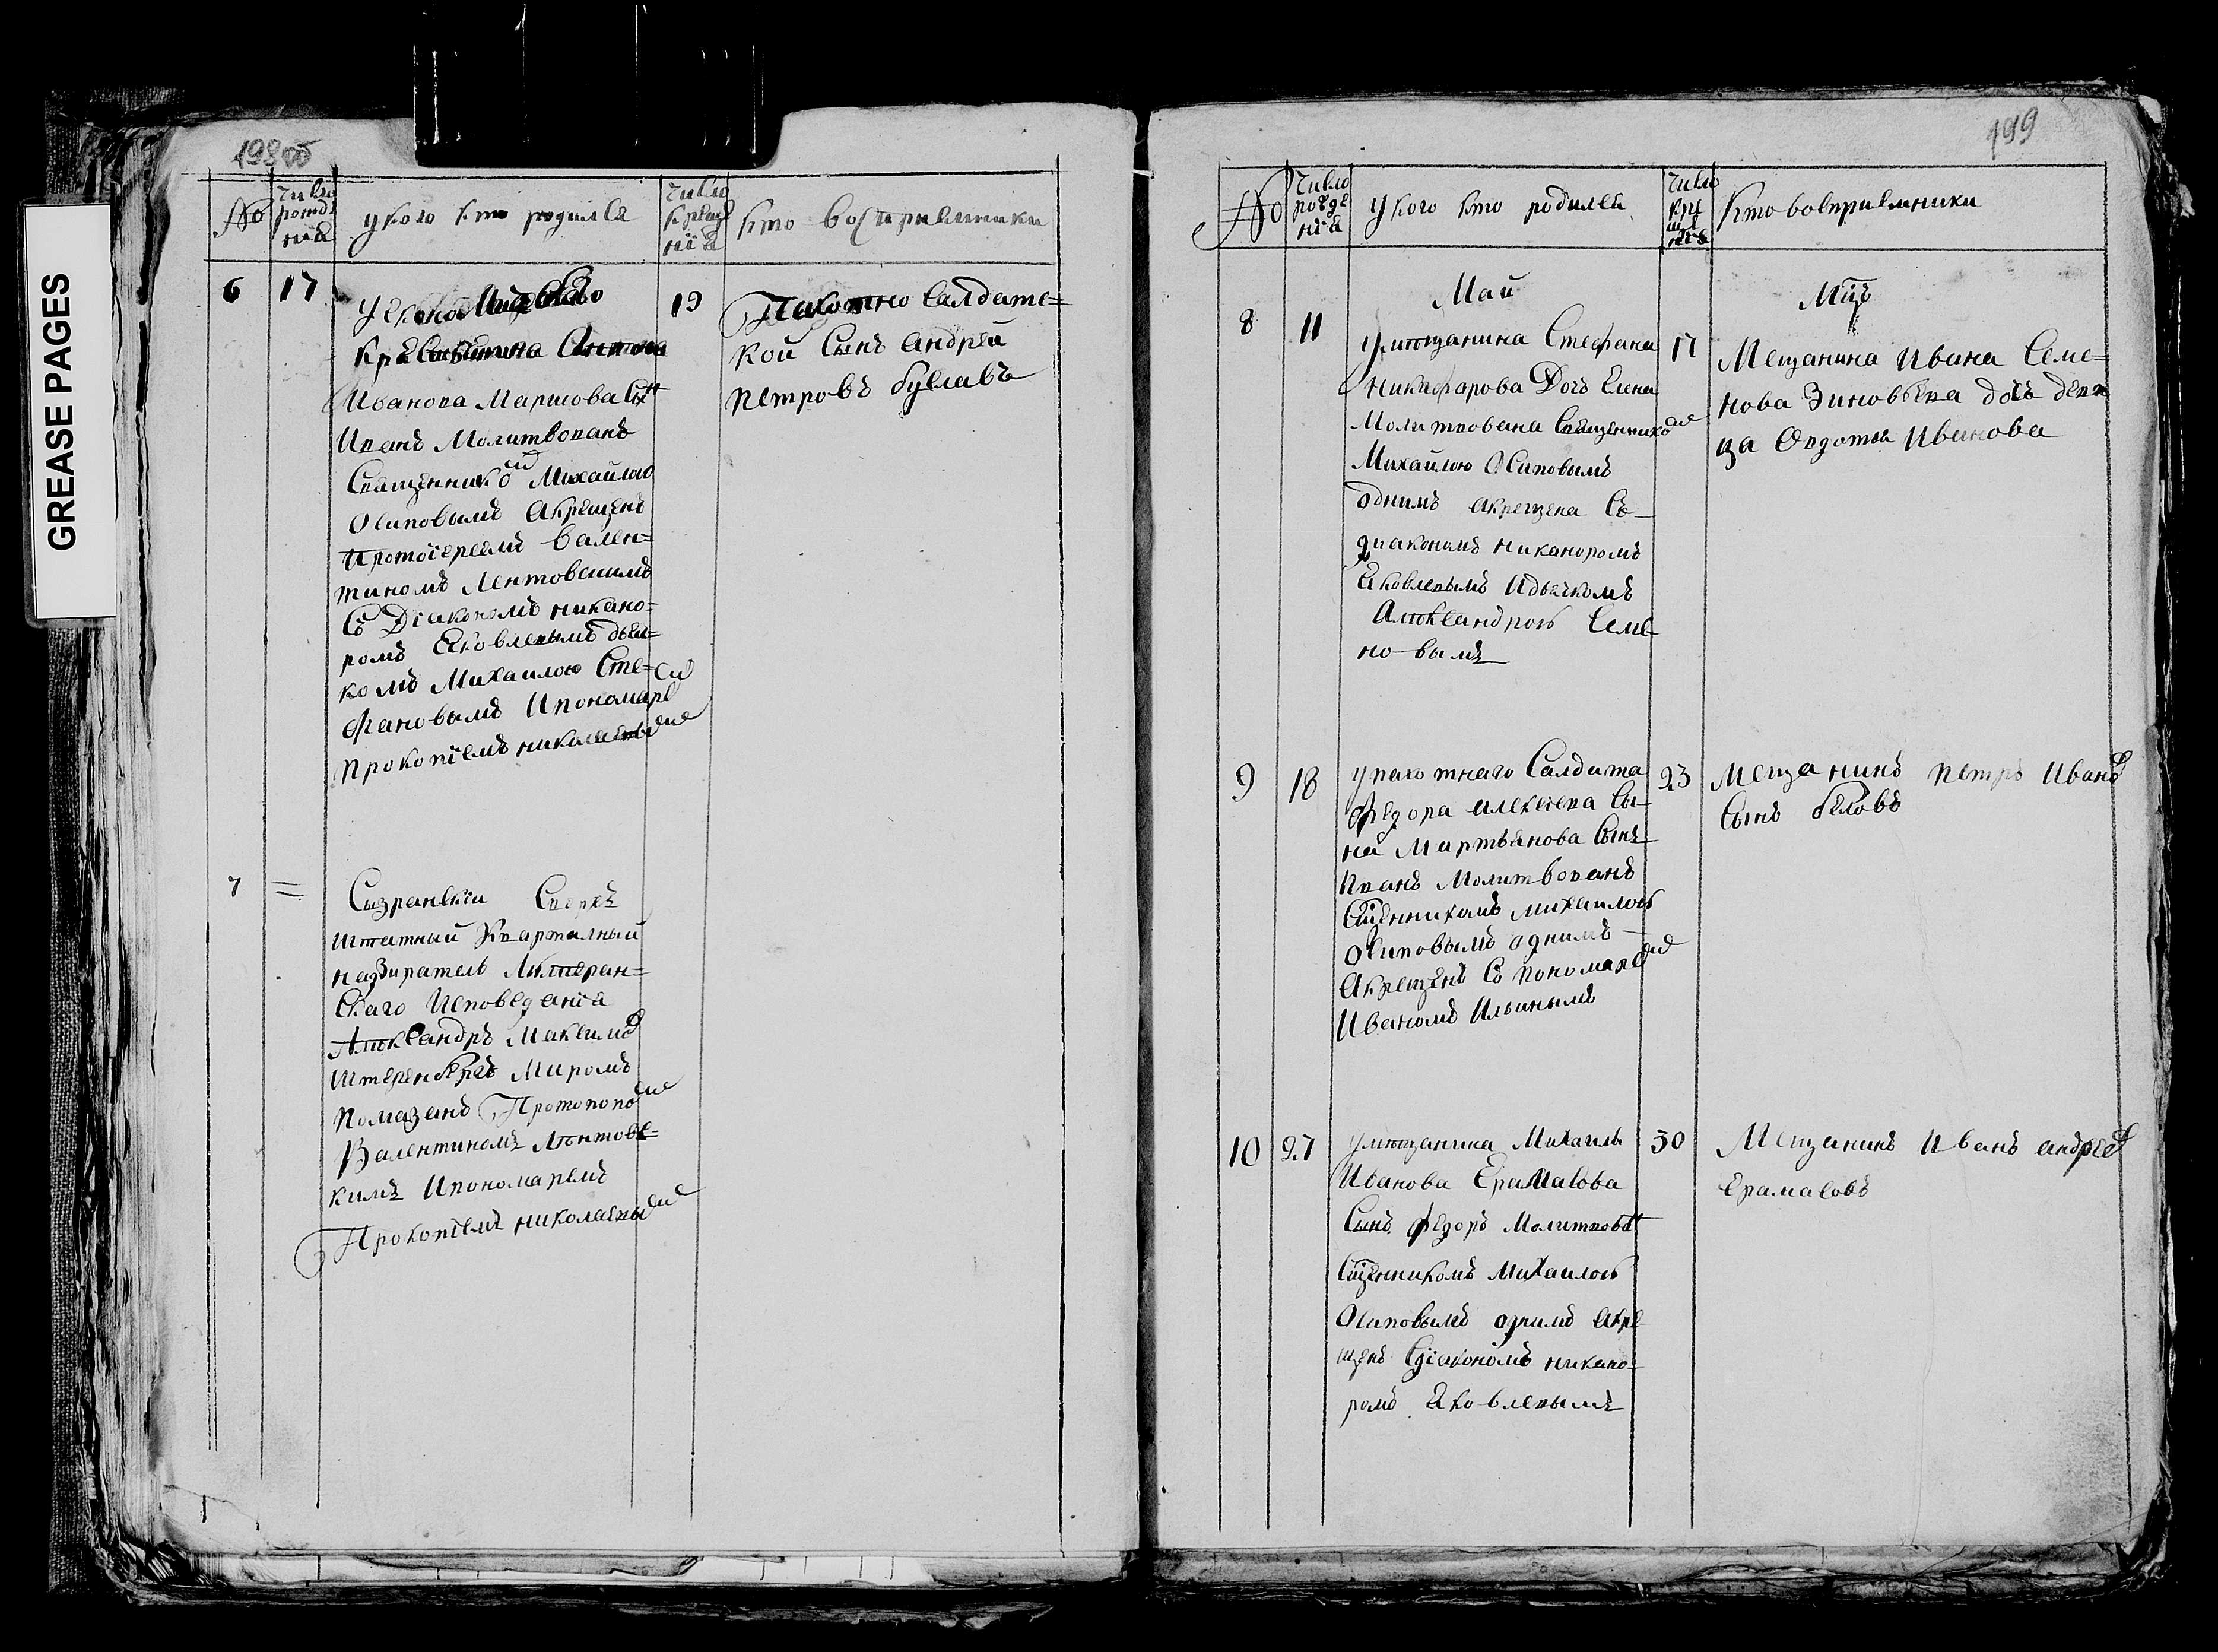 GREASE PAGES
198 об
№
число рожде нїя
у кого кто родился
число креще нїя
кто восприемники
6
17
19
Иванова Маршова сынъ
Иванъ Молитвованъ
Священникомъ Михайлою
Осиповымъ акрещенъ
протоїереемъ вален=
тиномъ Лентовскимъ
Съ Дїакономъ никано=
ромъ Яковлевымъ дьяч=
комъ Михаилою Сте=
фановымъ Ипономаремъ
прокопїемъ николаевымъ
Пахотно Салдатс=
кой Сынъ андрей
петровъ
7
=
Сызранскїй Сверхъ
штатный Квартальный
надзиратель Лютеран=
скаго Исповеданїя
Александръ Максимовъ
Штеренбергъ Миромъ
помазанъ Протопопомъ
Валентиномъ Лентовс=
кимъ Ипономаремъ
Прокопїемъ николаевымъ
199
№
число рожде нїя
у кого кто родился
число кре ще нїя
кто восприемники
Май
Мцъ
8
11
17
умещанина Стефана
Никифорова Дочь Елена
Молитвована Священникомъ
Михайлою Осиповымъ
однимъ акрещена Съ
диакономъ никаноромъ
Яковлевымъ Идьячкомъ
Александромъ Семе
новымъ
Мещанина Ивана Семе=
нова Зиновьева дочь деви
ца Авдотья Иванова
9
18
23
упахотнаго Салдата
Федора алексеева Сы-
на Мартьянова Сынъ
Иванъ Молитвованъ
Сщенникомъ Михаилою
Осиповымъ однимъ
акрещенъ Съ пономаремъ
Иваномъ Ильинымъ
Мещанинъ петръ Ивановъ
Сынъ беловъ
10
27
30
умещанина Михаилы
Иванова Ерамасова
Сынъ федоръ Молитвованъ
Сщенникомъ Михаилою
Осиповымъ однимъ акре
щенъ Сдїакономъ никано-
ромъ Яковлевымъ
Мещанинъ Иванъ андреевъ
Ерамасовъ